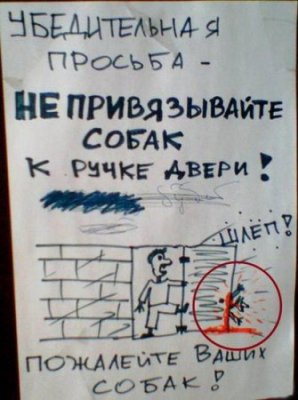 УБЕДИТЕЛЬНАЯ
ПРОСЬБА -
НЕ ПРИВЯЗЫВАЙТЕ
СОБАК
К РУЧКЕ ДВЕРИ!
ШЛЁП!
ПОЖАЛЕЙТЕ ВАШИХ
СОБАК!